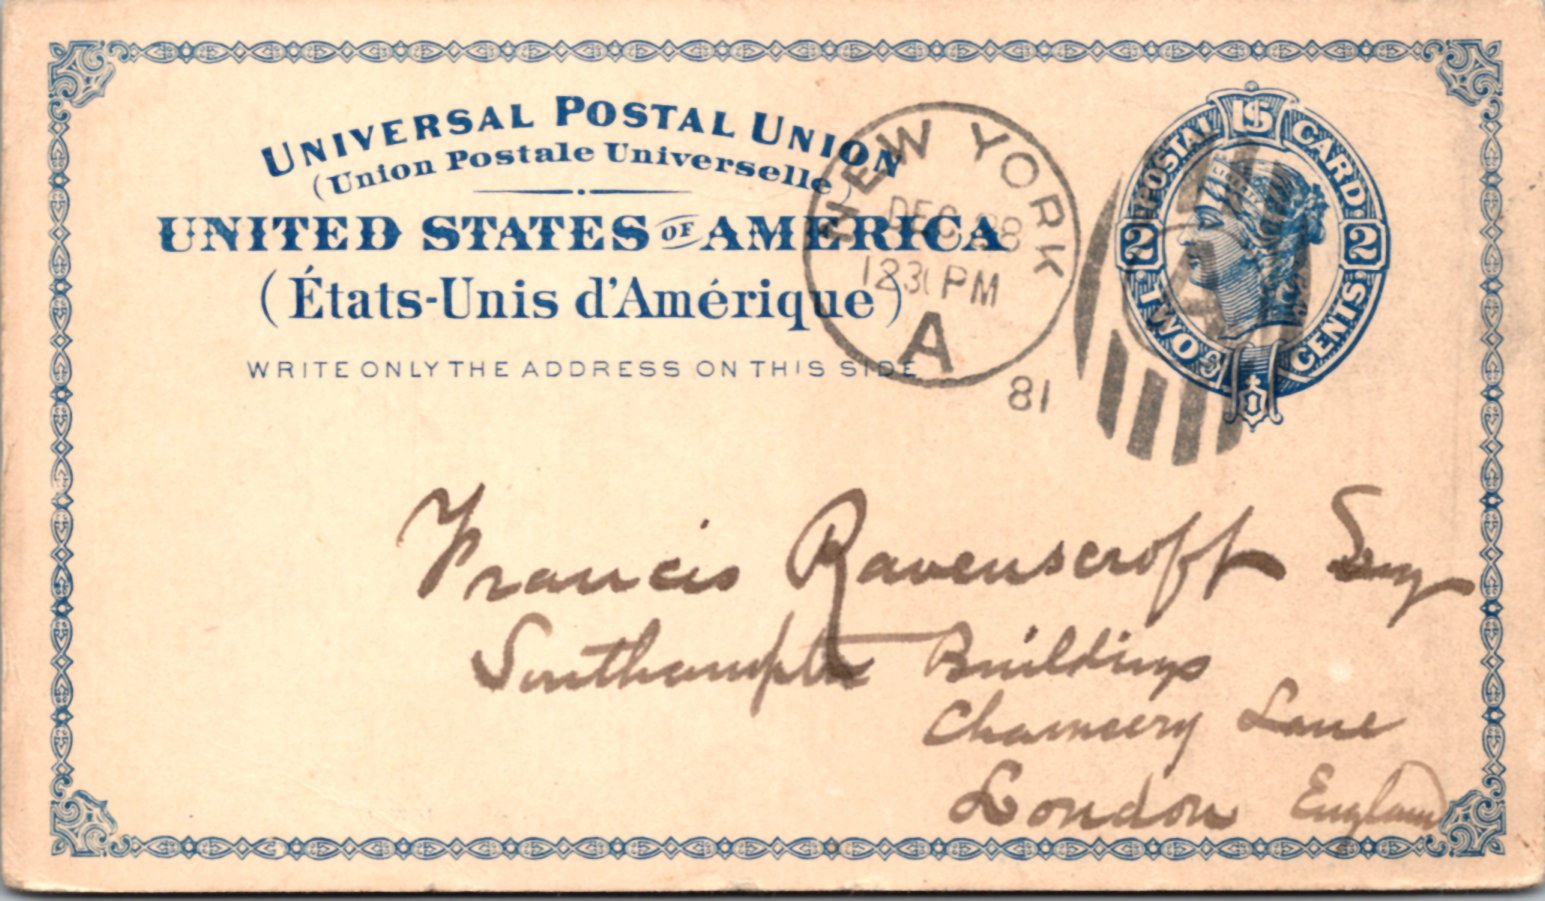 UNIVERSAL POSTAL UNION
(Union Postale Universelle)
UNITED STATES OF AMERICA
(États-Unis d'Amérique)
WRITE ONLY THE ADDRESS ON THIS SIDE
NEW YORK
DEC 28
1230 PM
A
81
U S
POSTAL CARD
2 2
TWO CENTS
A
Francis Ravenscroff Esq
Southampton Buildings
Chancery Lane
London England